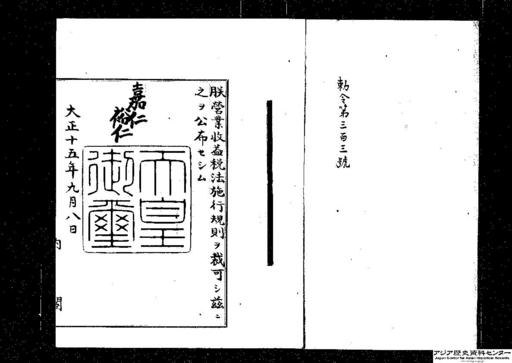 勅令第三百三號
朕營業收益税法施行規則ヲ裁可シ茲ニ
之ヲ公布セシム
嘉仁
裕仁
天皇
御璽
大正十五年九月八日
内閣
アジア歴史資料センター
Japan Center for Asian Historical Records